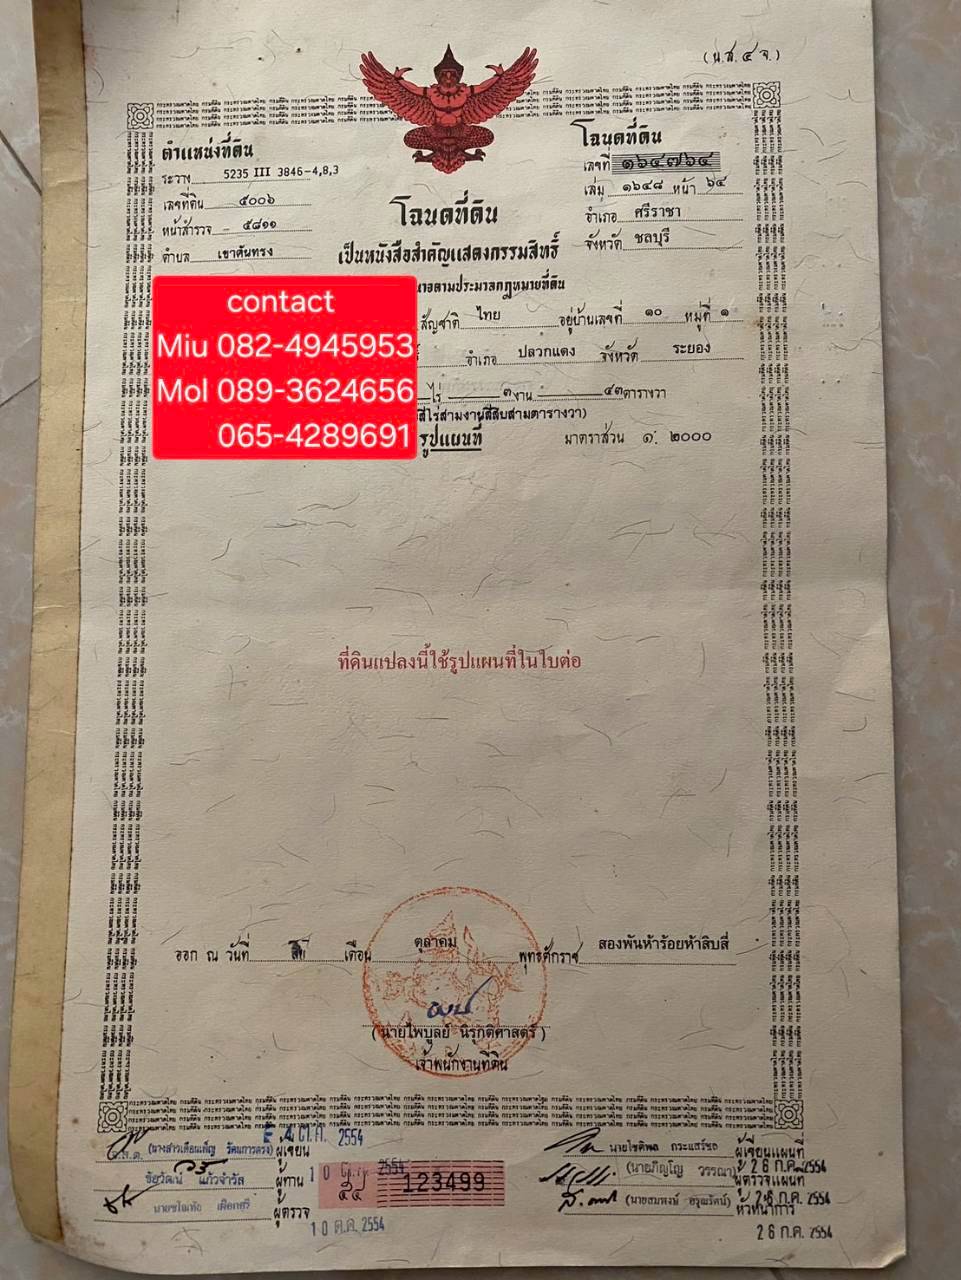 (น.ส. ๔ จ.)
ตำแหน่งที่ดิน
ระวาง 5235 III 3846-4,8,3
เลขที่ดิน ๕๐๐๖
หน้าสำรวจ ๕๘๑๑
ตำบล เขาคันทรง
โฉนดที่ดิน
เลขที่ ๑๖๔๗๖๔
เล่ม ๑๖๔๘ หน้า ๖๔
อำเภอ ศรีราชา
จังหวัด ชลบุรี
โฉนดที่ดิน
เป็นหนังสือสำคัญแสดงกรรมสิทธิ์
ตามประมวลกฎหมายที่ดิน
contact
Miu 082-4945953
Mol 089-3624656
065-4289691
สัญชาติ ไทย อยู่บ้านเลขที่ ๑๐ หมู่ที่ ๑
อำเภอ ปลวกแดง จังหวัด ระยอง
ไร่ ๓ งาน ๔๓ ตารางวา
สี่ไร่สามงานสี่สิบสามตารางวา)
รูปแผนที่ มาตราส่วน ๑: ๒๐๐๐
ที่ดินแปลงนี้ใช้รูปแผนที่ในใบต่อ
ออก ณ วันที่ สิบ เดือน ตุลาคม พุทธศักราช สองพันห้าร้อยห้าสิบสี่
(นายไพบูลย์ นิรุกติศาสตร์)
เจ้าพนักงานที่ดิน
(นางสาวเดือนเพ็ญ รัตนการตรง) ผู้เขียน
ชัยวัฒน์ แก้วจำรัส ผู้ทาน
ผู้ตรวจ
10 ต.ค. 2554
123499
นายโชติพล กระแสร์ชอ ผู้เขียนแผนที่
26 ก.ค. 2554
วรรณา) ผู้ตรวจแผนที่
(นายสมพงษ์ อรุณรัตน์) 26 ก.ค. 2554
หัวหน้าการ
26 ก.ค. 2554